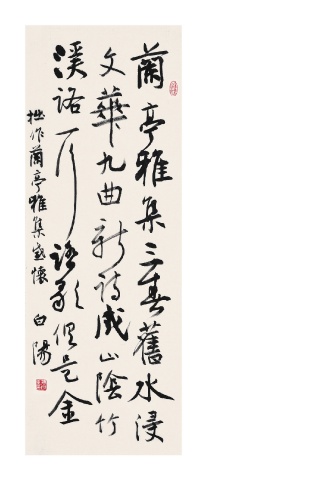 蘭亭雅集三春舊水浸
文華九曲新詩成山陰竹
溪一行是金
拙作蘭亭雅集感懷 白陽